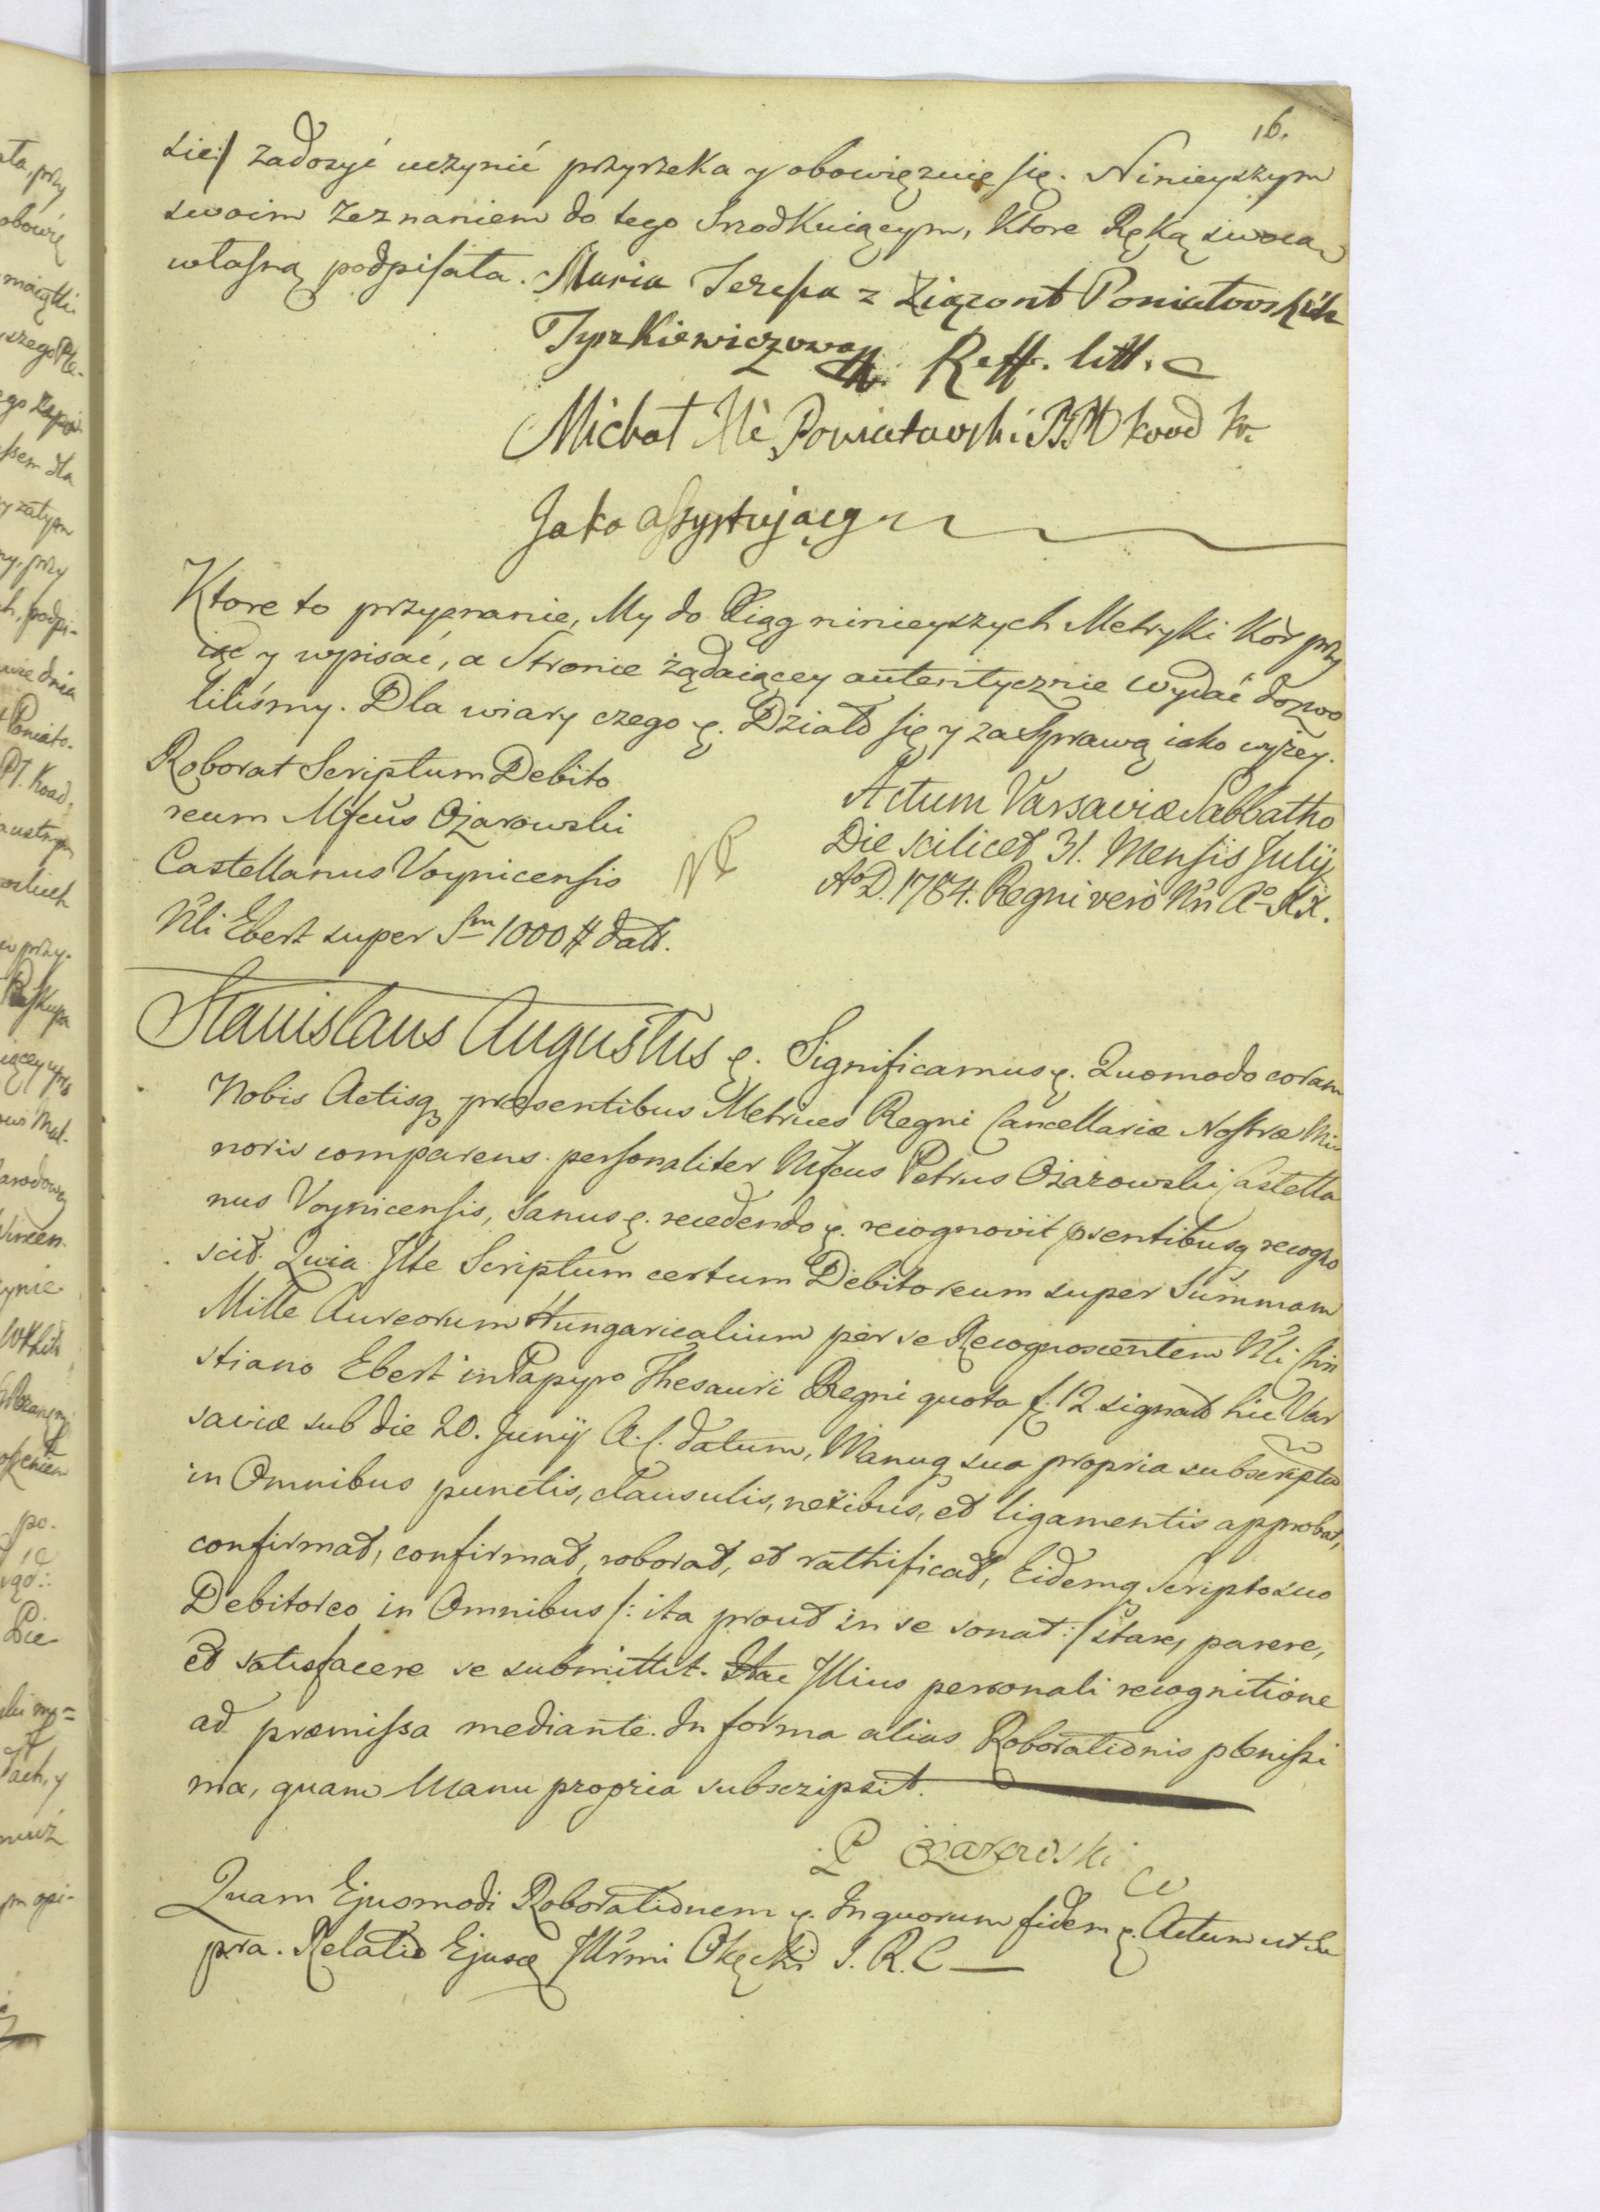 16.
sie:/ zadosyć uczynić przyrzeka y obowięzuie się. Ninieyszym
swoim zeznaniem do tego srzodkuiącym, ktore Ręką swoią
własną podpisała. Maria Teresa z Xiążont Poniatowskich
Tyszkiewiczowa Reff. litt.
Michał Poniatowski koad
Jako assystujący
Ktore to przyznanie, My do Xiąg ninieyszych Metryki Kor przy
iąć y wpisać, a Stronie żądaiącey autentycznie wydać dozwo
liliśmy. Dla wiary czego &. Działo się y za Sprawą iako wyżey.
Roborat Scriptum Debito
reum Mfcus Ożarowski
Castellanus Voynicensis
Nli Ebert super Sm 1000 # dat.
Actum Varsaviæ Sabbatho
Die scilicet 31. Mensis Julij
Ao D. 1784. Regni vero Nri Ao XX.
Stanislaus Augustus &. Significamus &. Quomodo coram
Nobis Actisq præsentibus Metrices Regni Cancellariæ Nostræ Mi
noris comparens personaliter Mfcus Petrus Ożarowski Castella
nus Voynicensis, Sanus &. recedendo &. recognovit psentibusq recogno
scit. Quia Ille Scriptum certum Debitoreum super Summam
Mille Aureorum Hungaricalium per se Recognoscentem Nli Chri
stiano Ebert in Papyro Thesauri Regni quota f. 12 signat hic Var
saviæ sub die 20. Junij A. C. datum, Manuq sua propria subscriptum
in Omnibus punctis, clausulis, nexibus, et ligamentis approbat,
confirmat, confirmat, roborat, et rathificat, Eidemq Scripto suo
Debitoreo in Omnibus /: ita prout in se sonat :/ stare, parere,
et satisfacere se submittit. Hac Illius personali recognitione
ad præmissa mediante. In forma alias Roborationis plenissi
ma, quam Manu propria subscripsit.
P Ożarowski
Quam Ejusmodi Roborationem &. In quorum fidem &. Actum ut Su
pra. Relatio Ejusd Illrmi Okęcki S. R. C